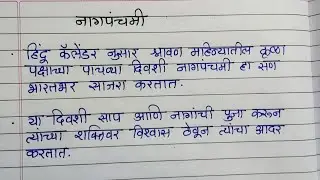 नागपंचमी
• हिंदू कॅलेंडर नुसार श्रावण महिन्यातील कृष्ण
पक्षाच्या पाचव्या दिवशी नागपंचमी हा सण
भारतभर साजरा करतात.
• या दिवशी साप आणि नागांची पुजा करून
त्यांच्या शक्तिवर विश्वास ठेवून त्यांचा आदर
करतात.